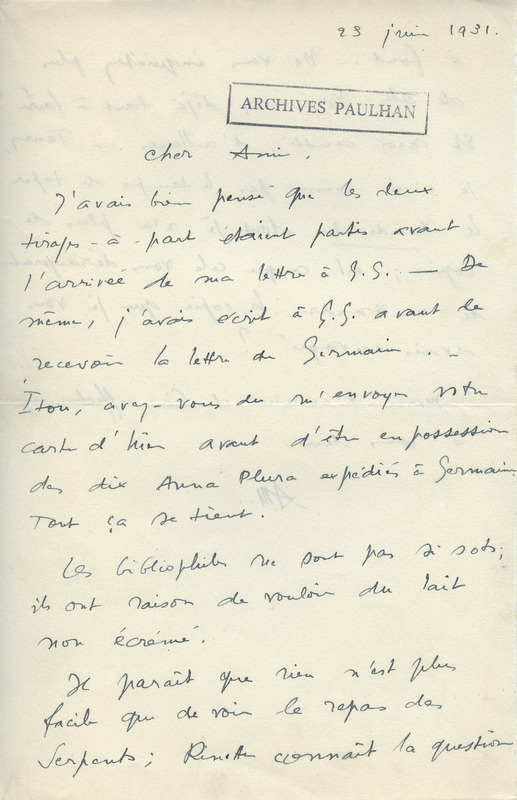 23 juin 1931.
ARCHIVES PAULHAN
cher Ami,
J'avais bien pensé que les deux
tirages-à-part étaient partis avant
l'arrivée de ma lettre à G.G. — De
même, j'avais écrit à G.G. avant de
recevoir la lettre de Germain. —
Itou, avez-vous du m'envoyer votre
carte d'hier avant d'être en possession
des dix Anna Plura expédiés à Germain.
Tout ça se tient.
Les bibliophiles ne sont pas si sots;
ils ont raison de vouloir du lait
non écrémé.
Il paraît que rien n'est plus
facile que de voir le repas des
Serpents; connaît la question